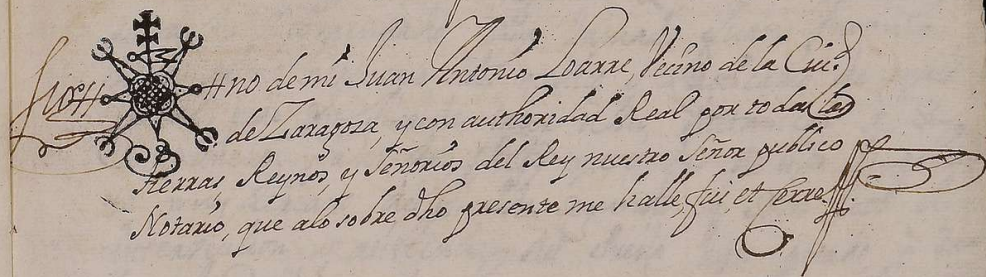 Sig## ##no de mi Juan Antonio Loarre, Vecino de la Ciud.
de Zaragoza, y con authoridad Real por todas las
tierras Reynos, y Señorios del Rey nuestro Señor publico
Notario, que a lo sobre dho presente me halle, fui, et cerre.